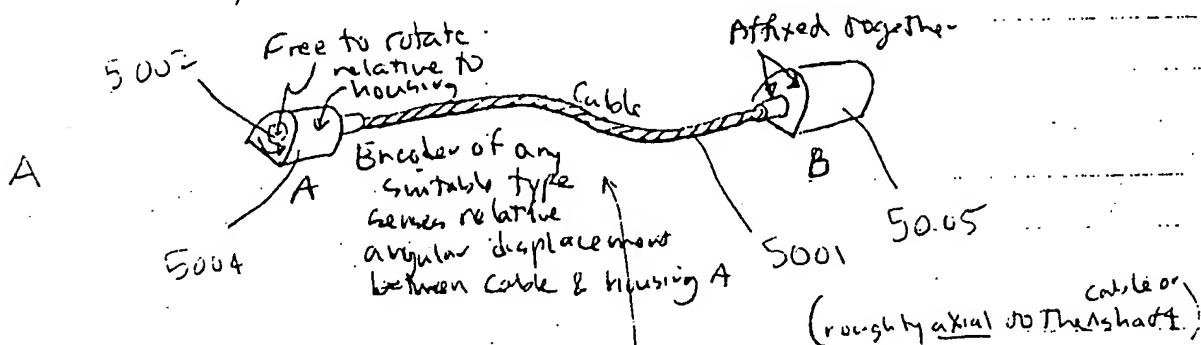 Free to rotate
relative to
housing
5002
Affixed together
Cable
A
A
Encoder of any
suitable type
senses relative
angular displacement
between cable & housing A
B
5004
5001
50.05
cable or
(roughly axial to the shaft)